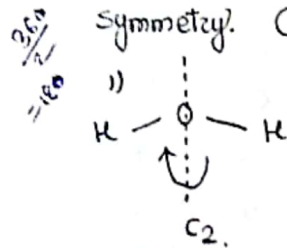 360/2
=180
Symmetry. (
1)
H O H
C2.